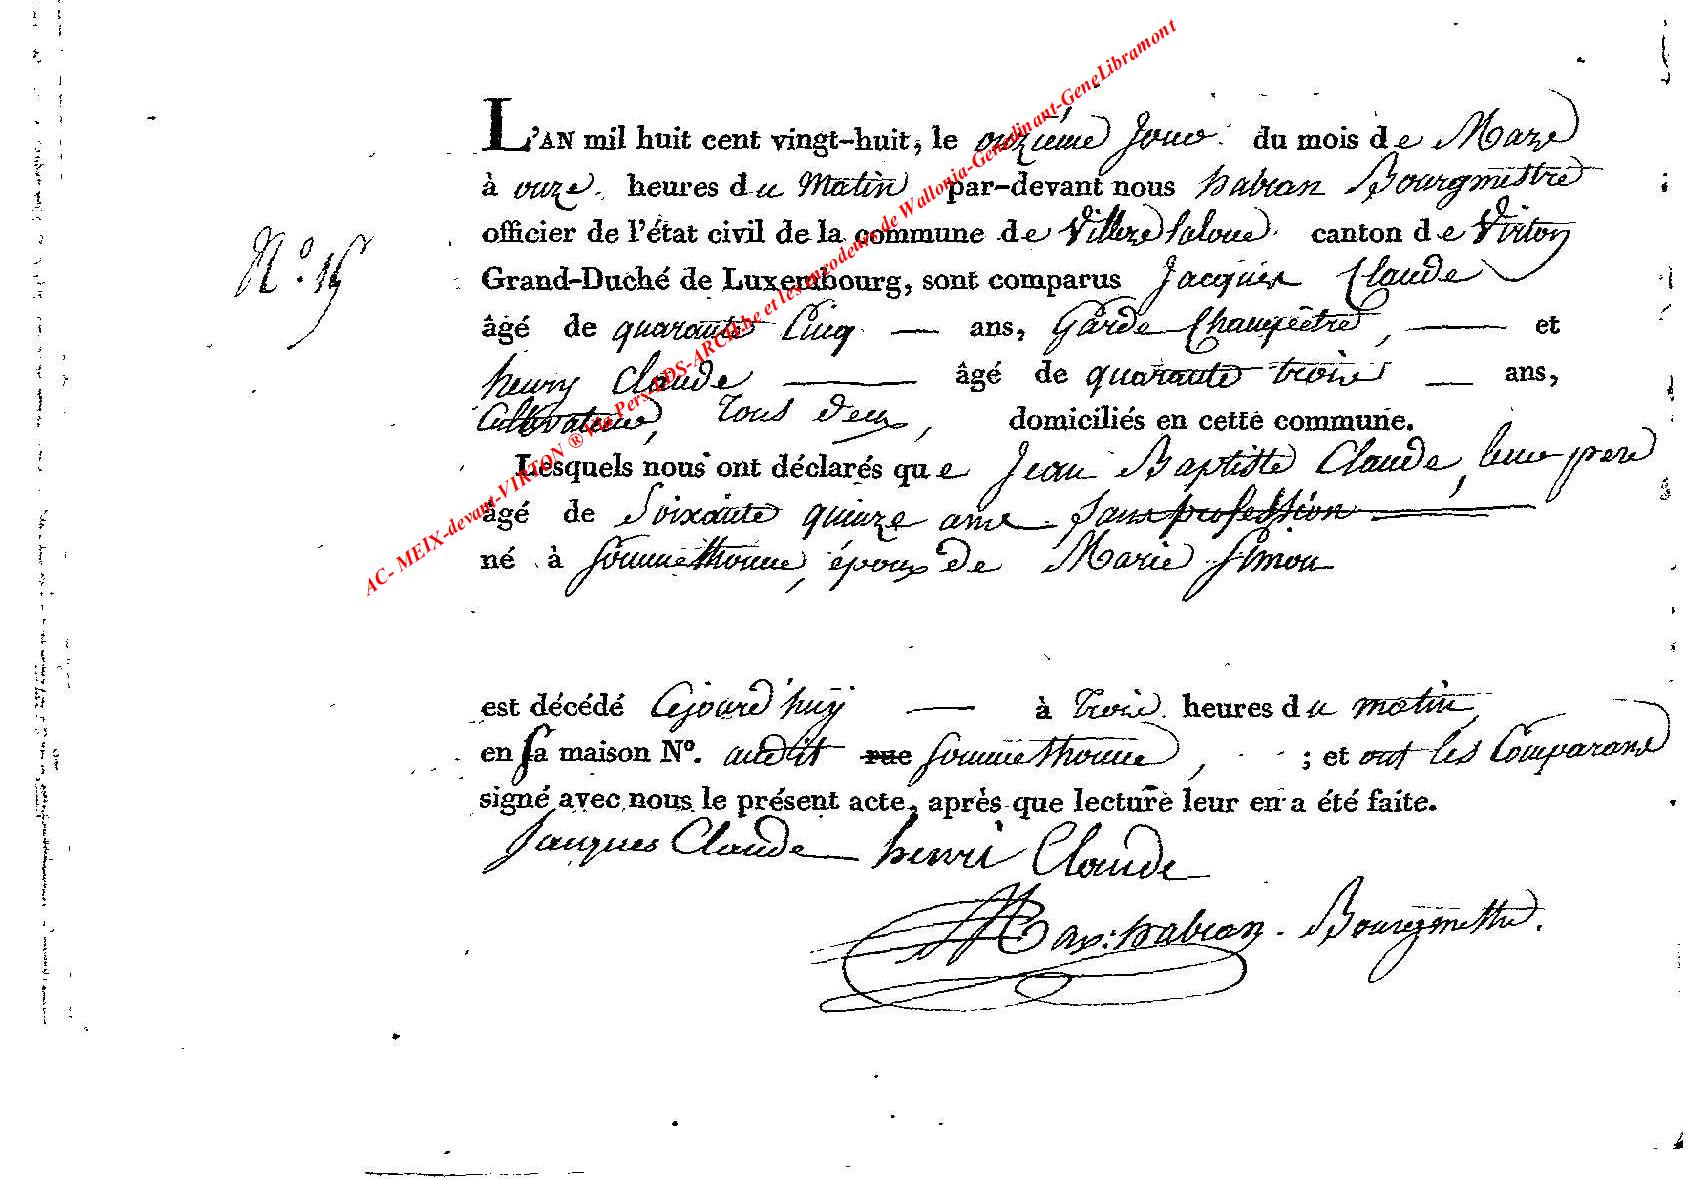 L'AN mil huit cent vingt-huit, le onzième Jour du mois de Mars
à onze heures du Matin par-devant nous habran Bourgmestre
officier de l'état civil de la commune de Villers laloue canton de Virton
N.° 15
Grand-Duché de Luxembourg, sont comparus Jacques Claude
âgé de quarante Cinq — ans, Garde Champêtre, — et
henry Claude — âgé de quarante trois — ans,
Cultivateur, Tous deux, domiciliés en cette commune.
Lesquels nous ont déclarés que Jean Baptiste Claude, leur pere
âgé de Soixante quinze ans Sans profession
né à Sommethonne, époux de Marie Simon
est décédé Cejourd'huy — à trois heures du matin
en sa maison N°. audit rue Sommethonne, ; et ont les Comparans
signé avec nous le présent acte, après que lecture leur en a été faite.
Jacques Claude henri Claude
Max: habran Bourgmestre.
AC- MEIX-devant-VIRTON ® Via Pers-LDS-ARCH be et les encodeurs de Wallonia-Genedinant-GeneLibramont